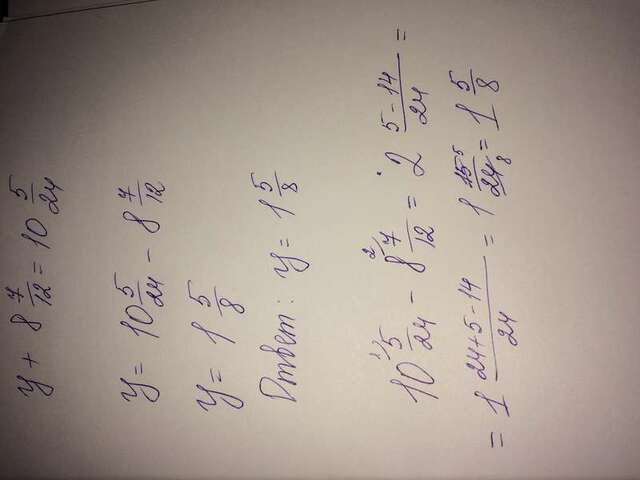 y + 8 7/12 = 10 5/24
y = 10 5/24 - 8 7/12
y = 1 5/8
Ответ: y = 1 5/8
10 5/24 ¹⁾ - 8 7/12 ²⁾ = 2 (5-14)/24 =
= 1 (24+5-14)/24 = 1 15⁵/24₈ = 1 5/8